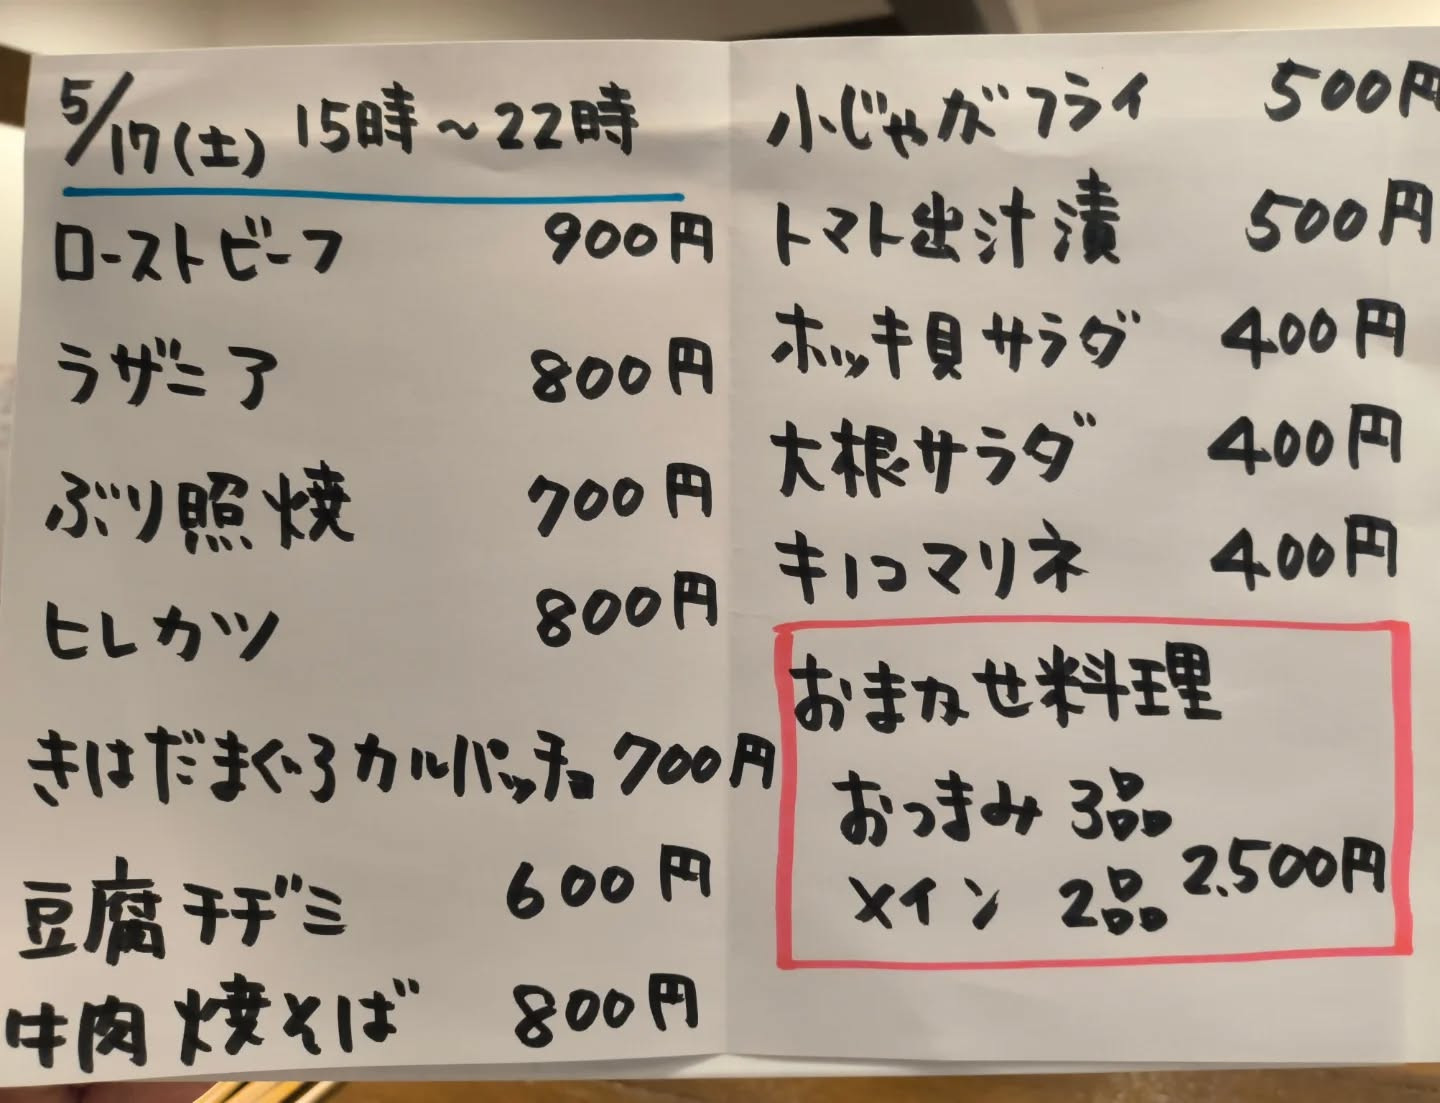 5/17(土) 15時〜22時
ローストビーフ 900円
ラザニア 800円
ぶり照焼 700円
ヒレカツ 800円
きはだまぐろカルパッチョ 700円
豆腐チヂミ 600円
牛肉焼そば 800円
小じゃがフライ 500円
トマト出汁漬 500円
ホッキ貝サラダ 400円
大根サラダ 400円
キノコマリネ 400円
おまかせ料理
おつまみ 3品
メイン 2品 2,500円